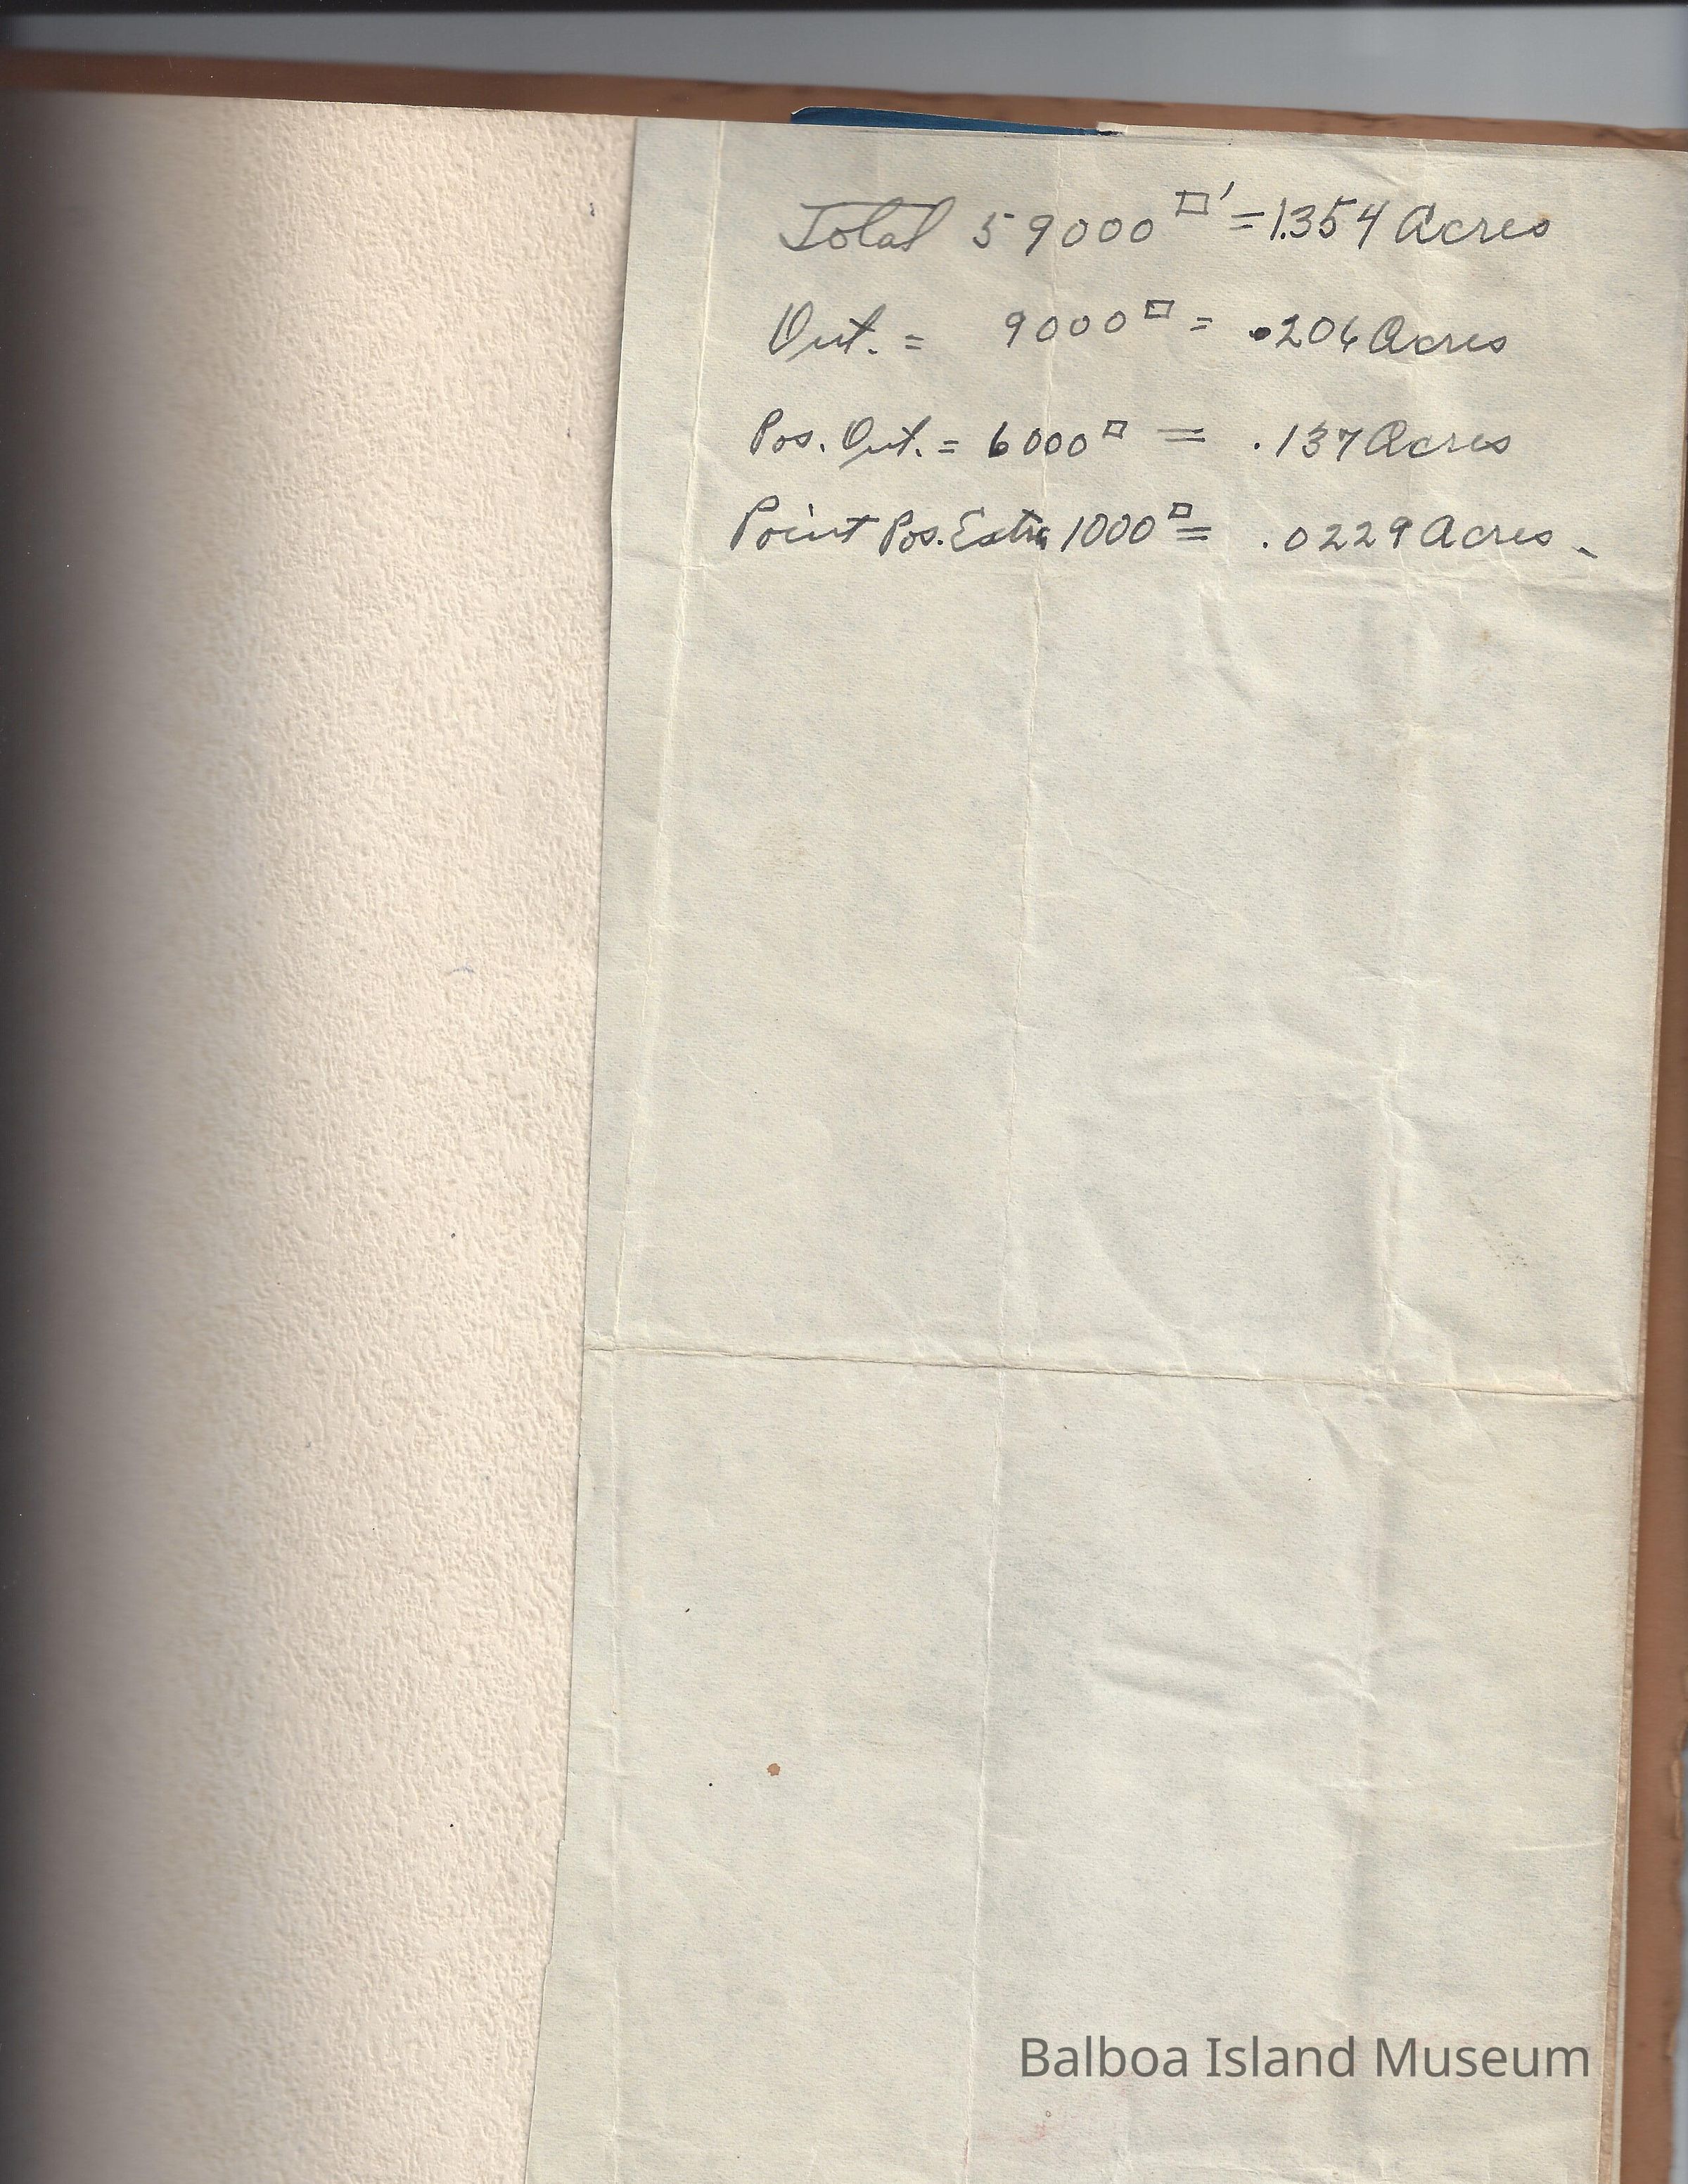 Total 59000□' = 1.354 Acres
Out. = 9000□ = .206 Acres
Pos. Out. = 6000□ = .137 Acres
Point Pos. Extra 1000□ = .0229 Acres.
Balboa Island Museum